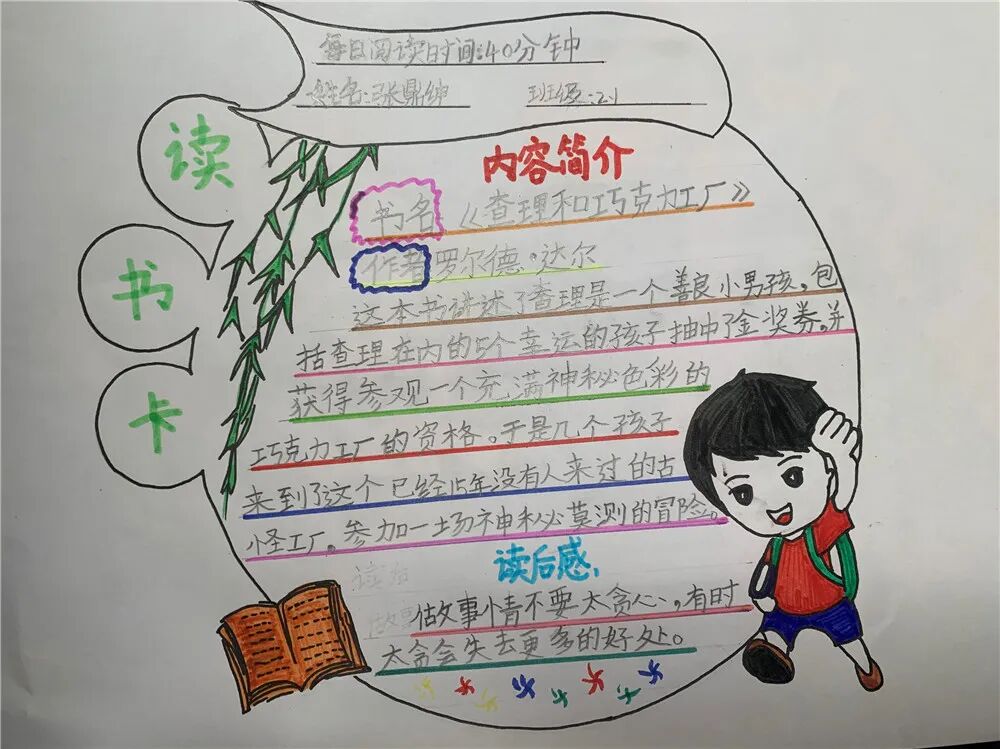 每日阅读时间:40分钟
姓名:张鼎绅 班级:21
读书卡
内容简介
书名《查理和巧克力工厂》
作者罗尔德·达尔
这本书讲述了查理是一个善良小男孩,包
括查理在内的5个幸运的孩子抽中了金奖券。并
获得参观一个充满神秘色彩的
巧克力工厂的资格。于是几个孩子
来到了这个已经15年没有人来过的古
怪工厂。参加一场神秘莫测的冒险。
读后感
做事情不要太贪心,有时
太贪会失去更多的好处。